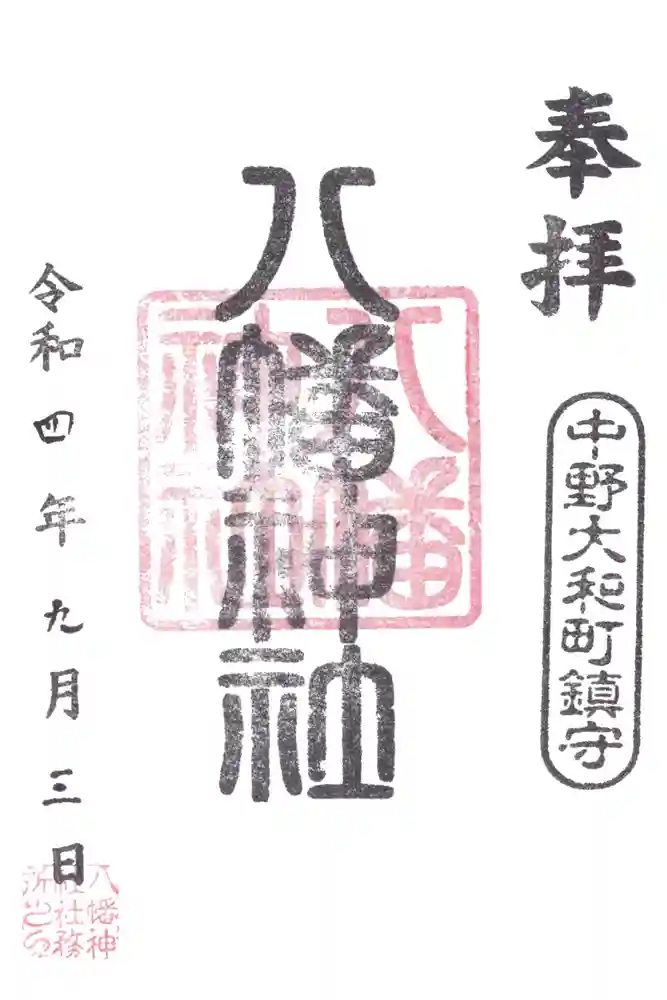 奉拝
中野大和町鎮守
八幡神社
八幡神社
令和四年九月三日
八幡神社社務所之印